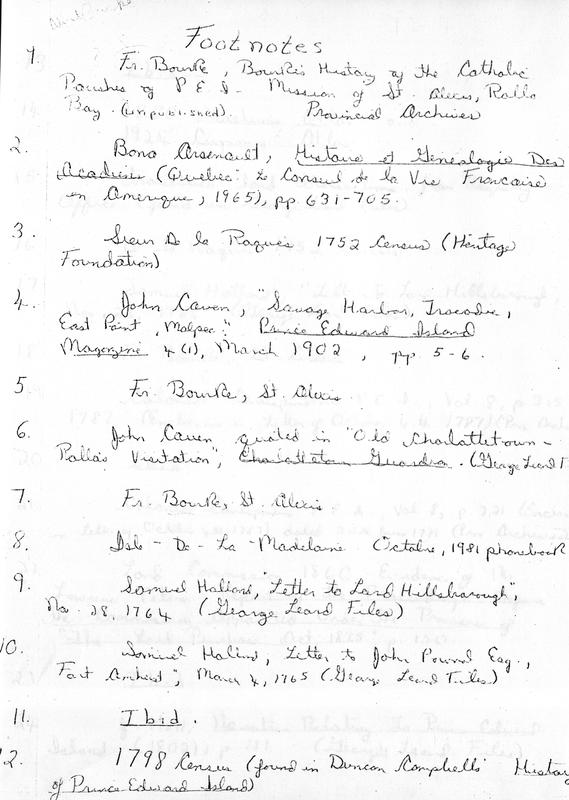 Footnotes
1. Fr. Bourke, Bourke's History of the Catholic
Parishes of P E I - Mission of St. Alexis, Rollo
Bay. (unpublished). Provincial Archives
2. Bona Arsenault, Histoire et Genealogie Des
Acadiens (Quebec: Le Conseil de la Vie Francaise
en Amerique, 1965), pp. 631-705.
3. Sieur De la Roque's 1752 Census (Heritage
Foundation)
4. John Caven, "Savage Harbor, Tracadie,
East Point, Malpec". Prince Edward Island
Magazine 4 (1), March 1902, pp 5-6.
5. Fr. Bourke, St. Alexis.
6. John Caven quoted in "Old Charlottetown -
Rollo's Visitation", Charlottetown Guardian. (George Leard F
7. Fr. Bourke, St. Alexis
8. Isle - De - La - Madelaine October, 1981 phonebook
9. Samuel Holland, "Letter to Lord Hillsborough",
No. 28, 1764 (George Leard Files)
10. Samuel Holland, "Letter to John Pownal Esq.,
Fort Amherst", March 4, 1765 (George Leard Files)
11. Ibid.
12. 1798 Census (found in Duncan Campbell's History
of Prince Edward Island)